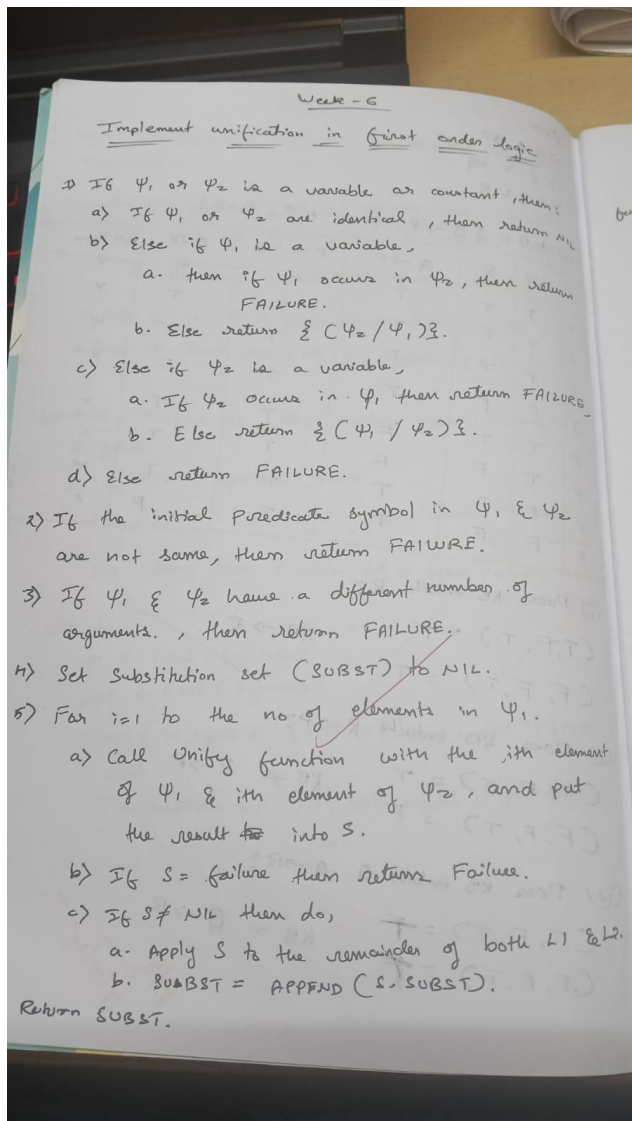 Week - 6
Implement unification in first order logic
1) If Ψ₁ or Ψ₂ is a variable or constant, then:
a) If Ψ₁ or Ψ₂ are identical, then return NIL
b) Else if Ψ₁ is a variable,
a. then if Ψ₁ occurs in Ψ₂, then return
FAILURE.
b. Else return { (Ψ₂ / Ψ₁)}.
c) Else if Ψ₂ is a variable,
a. If Ψ₂ occurs in Ψ₁ then return FAILURE,
b. Else return { (Ψ₁ / Ψ₂)}.
d) Else return FAILURE.
2) If the initial Predicate symbol in Ψ₁ & Ψ₂
are not same, then return FAILURE.
3) If Ψ₁ & Ψ₂ have a different number of
arguments., then return FAILURE.
4) Set Substitution set (SUBST) to NIL.
5) For i=1 to the no of elements in Ψ₁.
a) Call Unify function with the ith element
of Ψ₁ & ith element of Ψ₂, and put
the result into S.
b) If S = failure then returns Failure.
c) If S ≠ NIL then do,
a. Apply S to the remainder of both L1 & L2.
b. SUBST = APPEND (S, SUBST).
Return SUBST.